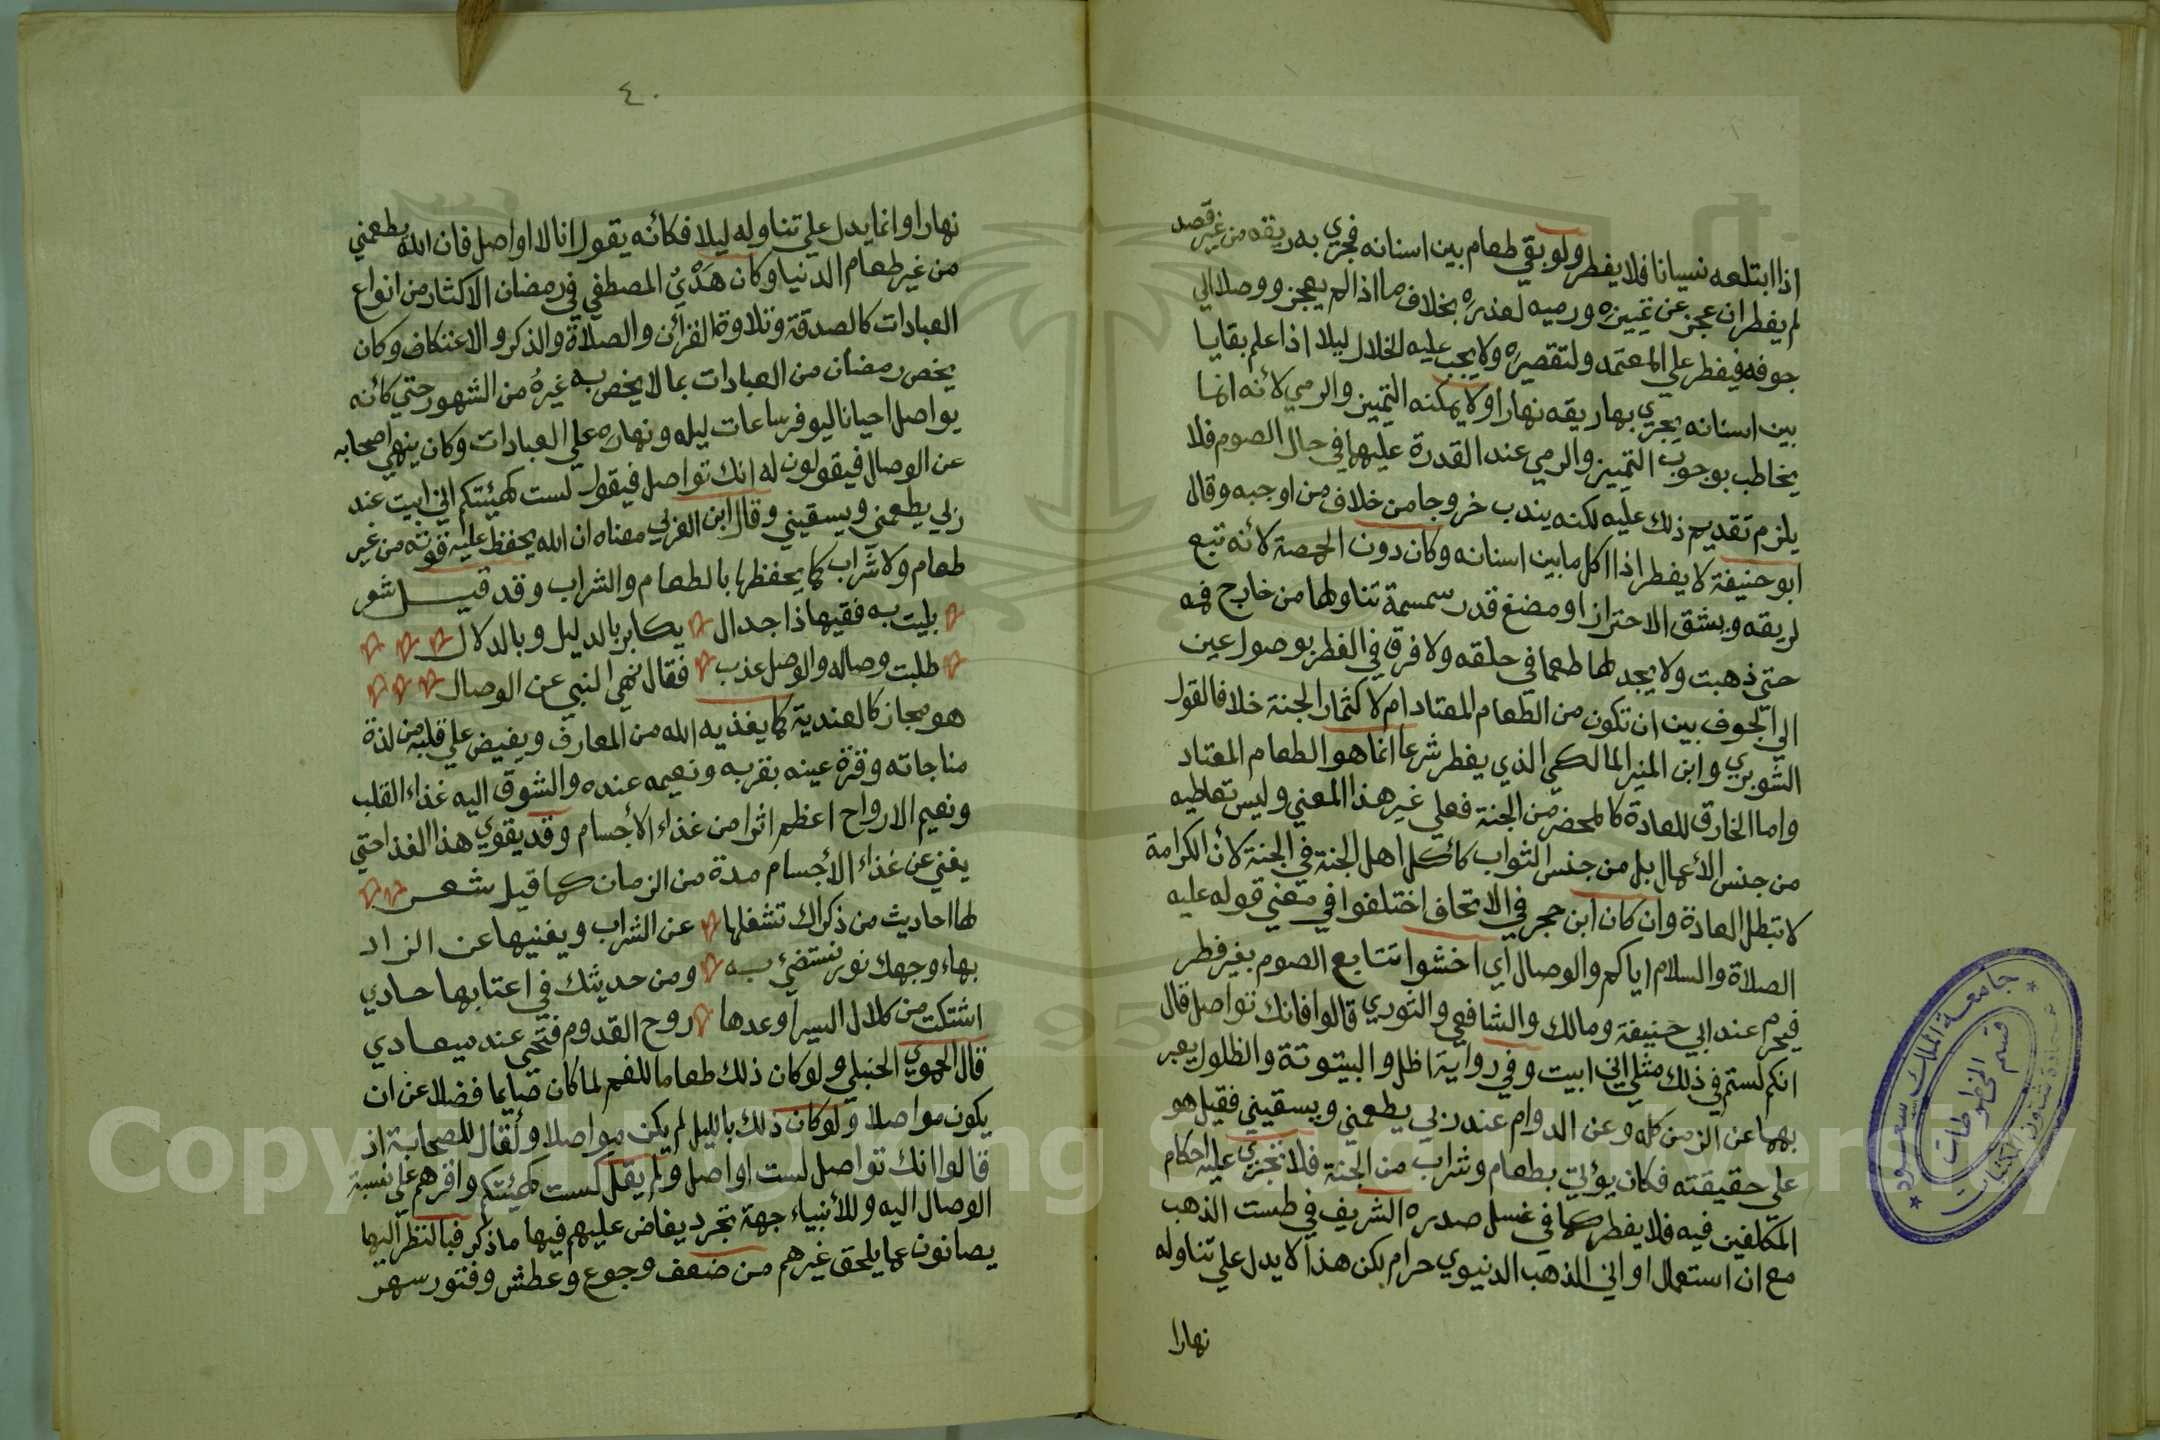 اذا ابتلعه نسيانا فلا يفطر ولو بقي طعام بين اسنانه فجري به ريقه من غير قصد
لم يفطر ان عجز عن تمييزه ورميه لعذره بخلاف ما اذا لم يعجز ووصلا الي
جوفه فيفطر علي المعتمد ولتقصيره ولا يجب عليه الخلال ليلا اذا علم بقايا
بين اسنانه يجري بها ريقه نهارا ولا يمكنه التمييز والرمي لأنه انما
يخاطب بوجوب التمييز والرمي عند القدرة عليهما في حال الصوم فلا
يلزم تقديم ذلك عليه لكنه يندب خروجا من خلاف من اوجبه وقال
ابو حنيفة لا يفطر اذا اكل ما بين اسنانه وكان دون الحمصة لأنه تبع
لريقه ويشق الاحتراز او مضغ قدر سمسمة تناولها من خارج فمه
حتي ذهبت ولا يجد لها طعما في حلقه ولا فرق في الفطر بوصول عين
الي الجوف بين ان تكون من الطعام المعتاد ام لا كثمار الجنة خلافا لقول
الشوبري وابن المنير المالكي الذي يفطر شرعا انما هو الطعام المعتاد
واما الخارق للعادة كالمحضر من الجنة فعلي غير هذا المعني وليس تعاطيه
من جنس الأعمال بل من جنس الثواب كأكل اهل الجنة في الجنة لأن الكرامة
لا تبطل العادة وان كان ابن حجر في الاتحاف اختلفوا في معني قوله عليه
الصلاة والسلام اياكم والوصال اي اخشوا تتابع الصوم بغير فطر
فيحرم عند ابي حنيفة ومالك والشافعي والثوري قالوا فانك تواصل قال
انكم لستم في ذلك مثلي اني ابيت وفي رواية اظل والبيتوتة والظلول يعبر
بهما عن الزمن كله وعن الدوام عند ربي يطعمني ويسقيني فقيل هو
علي حقيقته فكان يؤتي بطعام وشراب من الجنة فلا تجري عليه احكام
المكلفين فيه فلا يفطر كما في غسل صدره الشريف في طست الذهب
مع ان استعمال اواني الذهب الدنيوي حرام لكن هذا لا يدل علي تناوله
نهارا
٤٠
نهارا وانما يدل علي تناوله ليلا فكأنه يقول انا لا اواصل فان الله يطعمني
من غير طعام الدنيا وكان هَدْيُ المصطفي في رمضان الاكثار من انواع
العبادات كالصدقة وتلاوة القرآن والصلاة والذكر والاعتكاف وكان
يخص رمضان من العبادات بما لا يخص به غيرهُ من الشهور حتي كأنه
يواصل احيانا ليوفر ساعات ليله ونهاره علي العبادات وكان ينهي اصحابه
عن الوصال فيقولون له انك تواصل فيقول لست كهيئتكم اني ابيت عند
ربي يطعمني ويسقيني وقال ابن العربي معناه ان الله يحفظ عليه قوته من غير
طعام ولا شراب كما يحفظها بالطعام والشراب وقد قيل شعر
بليت به فقيها ذا جدال يكابر بالدليل وبالدلال
طلبت وصاله والوصل عذب فقال نهي النبي عن الوصال
هو مجاز كالعندية كما يغذيه الله من المعارف ويفيض علي قلبه من لذة
مناجاته وقرة عينه بقربه ونعيمه عنده والشوق اليه غذاء القلب
ونعيم الارواح اعظم اثرا من غذاء الأجسام وقد يقوي هذا الغذا حتي
يغني عن غذاء الأجسام مدة من الزمان كما قيل شعر
لها احاديث من ذكراك تشغلها عن الشراب ويغنيها عن الزاد
بهاء وجهك نور نستضيء به ومن حديثك في اعتابها حادي
اشتكت من كلال السير اوعدها روح القدوم فتحي عند ميعادي
قال الحموي الحنبلي ولو كان ذلك طعاما للفم لما كان صايما فضلا عن ان
يكون مواصلا ولو كان ذلك بالليل لم يكن مواصلا ولقال للصحابة اذ
قالوا انك تواصل لست اواصل ولم يقل لست كهيئتكم واقرهم علي نسبة
الوصال اليه وللأنبياء جهة تجرد يفاض عليهم فيها ما ذكر فبالنظر اليها
يصانون عما يلحق غيرهم من ضعف وجوع وعطش وفتور سهر
جامعة الملك سعود
عمادة شئون المكتبات
قسم المخطوطات
Copyright © King Saud University
1957